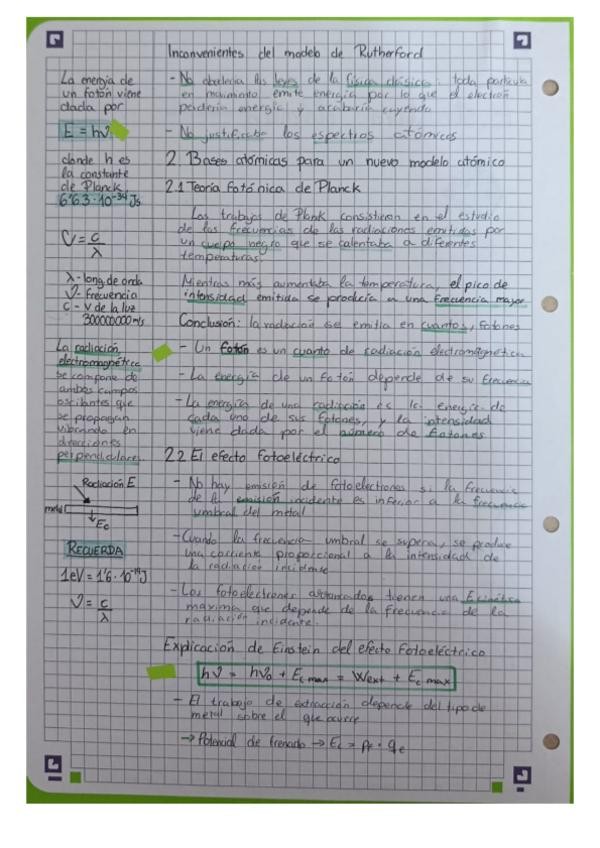 Inconvenientes del modelo de Rutherford
- No obedecía las leyes de la física clásica: toda partícula
en movimiento emite energía por lo que el electrón
perdería energía y acabaría cayendo
- No justificaba los espectros atómicos
2. Bases atómicas para un nuevo modelo atómico
2.1 Teoría fotónica de Planck
Los trabajos de Plank consistieron en el estudio
de las frecuencias de las radiaciones emitidas por
un cuerpo negro que se calentaba a diferentes
temperaturas.
Mientras más aumentaba la temperatura, el pico de
intensidad emitida se producía a una frecuencia mayor
Conclusión: la radiación se emitía en cuantos, fotones
- Un fotón es un cuanto de radiación electromagnética
- La energía de un fotón depende de su frecuencia
- La energía de una radiación es la energía de
cada uno de sus fotones, y la intensidad
viene dada por el número de fotones
2.2 El efecto fotoeléctrico
- No hay emisión de fotoelectrones si la frecuencia
de la emisión incidente es inferior a la frecuencia
umbral del metal
- Cuando la frecuencia umbral se supera, se produce
una corriente proporcional a la intensidad de
la radiación incidente
- Los fotoelectrones arrancados tienen una E cinética
máxima que depende de la frecuencia de la
radiación incidente.
Explicación de Einstein del efecto fotoeléctrico
hν = hν₀ + Ec max = Wext + Ec max
- El trabajo de extracción depende del tipo de
metal sobre el que ocurre
→ Potencial de frenado → Ec = Pf · qe
La energía de
un fotón viene
dada por
E = hν
donde h es
la constante
de Planck
6'63·10⁻³⁴ Js
ν = c/λ
λ - long. de onda
ν - frecuencia
c - v de la luz
300000000 m/s
La radiación
electromagnética
se compone de
ambos campos
oscilantes que
se propagan
vibrando en
direcciones
perpendiculares.
Radiación E
metal
Ec
RECUERDA
1eV = 1'6·10⁻¹⁹ J
ν = c/λ